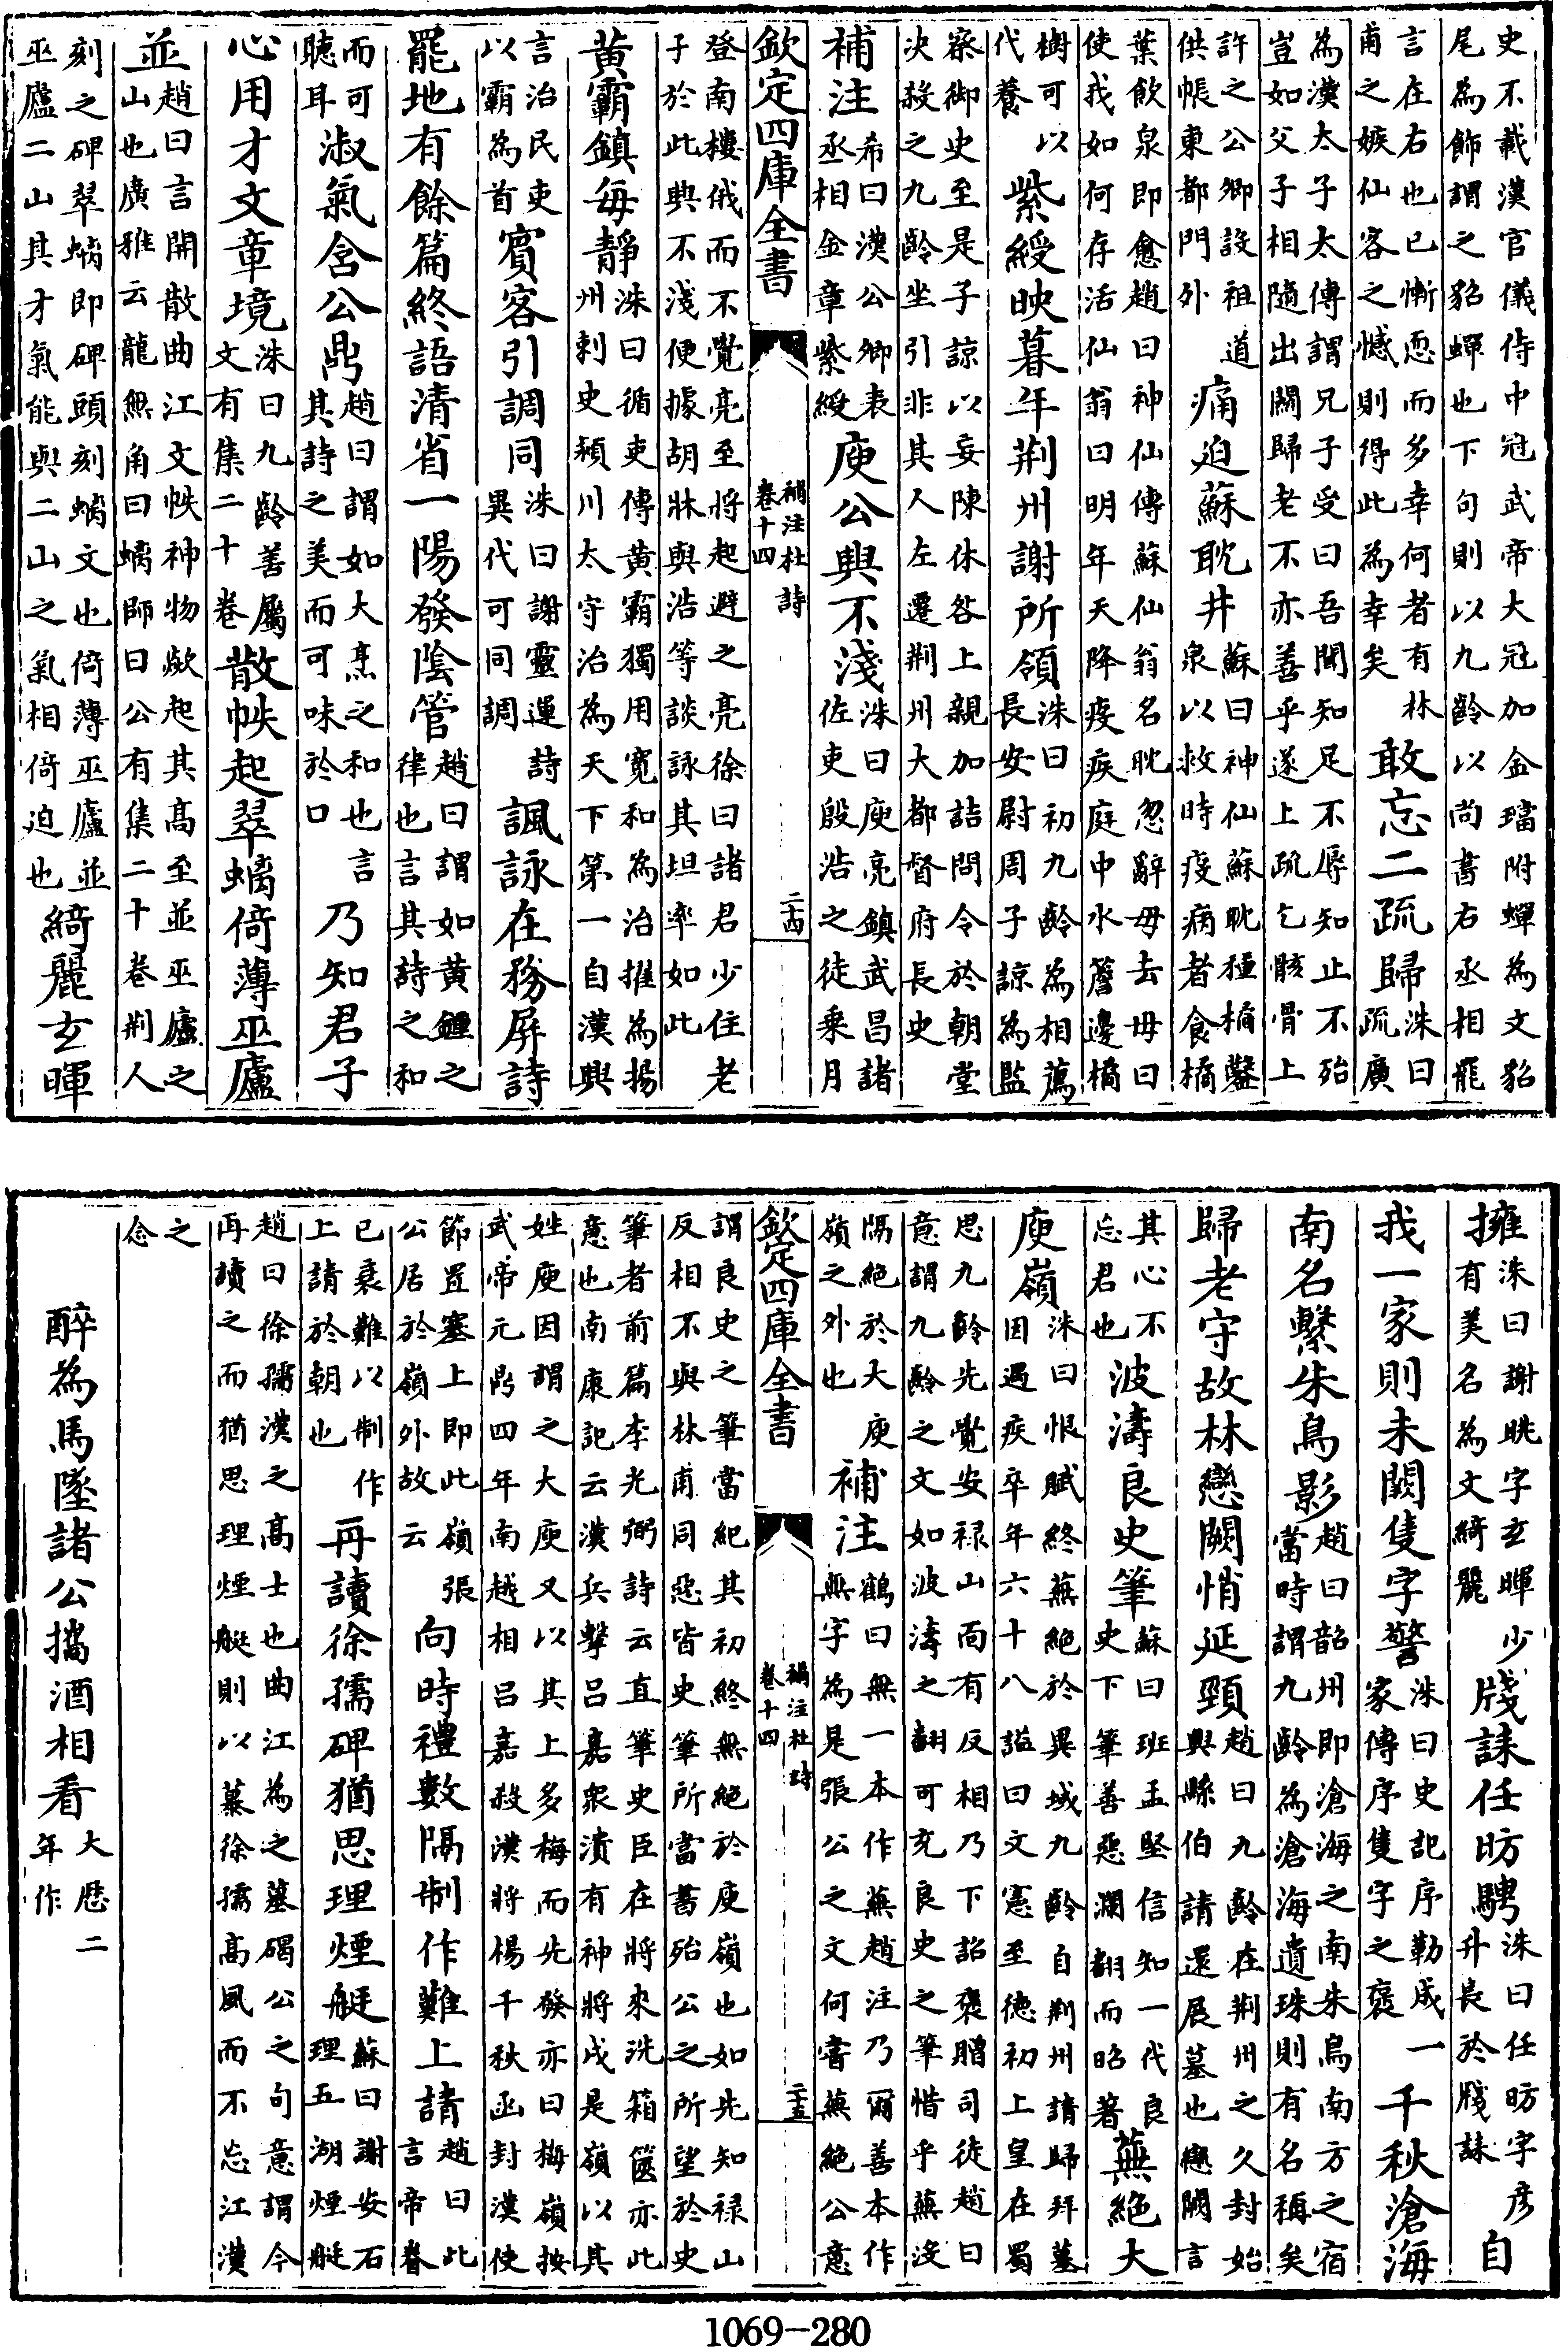 史不載漢官儀侍中冠武帝大冠加金璫附蟬為文貂
尾為飾謂之貂蟬也下句則以九齡以尚書右丞相罷
言在右也已慚恧而多幸何者有林
甫之嫉仙客之憾則得此為幸矣
敢忘二疏歸
洙曰
疏廣
為漢太子太傅謂兄子受曰吾聞知足不辱知止不殆
豈如父子相隨出關歸老不亦善乎遂上疏乞骸骨上
許之公卿設祖道
供帳東都門外
痛迫蘇耽井
蘇曰神仙蘇耽種橘鑿
泉以救時疫病者食橘
葉飲泉即愈趙曰神仙傳蘇仙翁名耽忽辭母去母曰
使我如何存活仙翁曰明年天降疫疾庭中水簷邊橘
樹可以
代養
紫綬映暮年荆州謝所領
洙曰初九齡為相薦
長安尉周子諒為監
察御史至是子諒以妄陳休咎上親加詰問令於朝堂
決殺之九齡坐引非其人左遷荆州大都督府長史
補注
希曰漢公卿表
丞相金章紫綬
庾公興不淺
洙曰庾亮鎮武昌諸
佐吏殷浩之徒乘月
欽定四庫全書
補注杜詩
卷十四
二十四
登南樓俄而不覺亮至將起避之亮徐曰諸君少住老
子於此興不淺便據胡牀與浩等談詠其坦率如此
黄霸鎮每靜
洙曰循吏傳黄霸獨用寛和為治推為揚
州刺史潁川太守治為天下第一自漢興
言治民吏
以霸為首
賓客引調同
洙曰謝靈運詩
異代可同調
諷詠在務屏詩
罷地有餘篇終語清省一陽發陰管
趙曰謂如黄鍾之
律也言其詩之和
而可
聽耳
淑氣含公鼎
趙曰謂如大烹之和也言
其詩之美而可味於口
乃知君子
心用才文章境
洙曰九齡善屬
文有集二十卷
散帙起翠螭倚薄巫廬
並
趙曰言開散曲江文帙神物歘起其高至並巫廬之
山也廣雅云龍無角曰螭師曰公有集二十卷荆人
刻之碑翠螭即碑頭刻螭文也倚薄巫廬並
巫廬二山其才氣能與二山之氣相倚迫也
綺麗玄暉
擁
洙曰謝眺字玄暉少
有美名為文綺麗
牋誄任昉騁
洙曰任昉字彦
升長於牋誄
自
我一家則未闕隻字警
洙曰史記序勒成一
家傳序隻字之褒
千秋滄海
南名繫朱鳥影
趙曰韶州即滄海之南朱鳥南方之宿
當時謂九齡為滄海遺珠則有名稱矣
歸老守故林戀闕悄延頸
趙曰九齡在荆州之久封始
興縣伯請還展墓也戀闕言
其心不
忘君也
波濤良史筆
蘇曰班孟堅信知一代良
史下筆善惡瀾翻而昭著
蕪絶大
庾嶺
洙曰恨賦終蕪絶於異域九齡自荆州請歸拜墓
因遇疾卒年六十八謚曰文憲至德初上皇在蜀
思九齡先覺安禄山面有反相乃下詔褒贈司徒趙曰
意謂九齡之文如波濤之翻可充良史之筆惜乎蕪沒
隔絶於大庾
嶺之外也
補注
鶴曰無一本作蕪趙注乃爾善本作
無字為是張公之文何嘗蕪絶公意
欽定四庫全書
補注杜詩
卷十四
二十五
謂良史之筆當紀其初終無絶於庾嶺也如先知禄山
反相不與林甫同惡皆史筆所當書殆公之所望於史
筆者前篇李光弼詩云直筆史臣在將來洗箱篋亦此
意也南康記云漢兵擊吕嘉衆潰有神將戍是嶺以其
姓庾因謂之大庾又以其上多梅而先發亦曰梅嶺按
武帝元鼎四年南越相吕嘉殺漢將楊千秋函封漢使
節置塞上即此嶺張
公居於嶺外故云
向時禮數隔制作難上請
趙曰此
言帝眷
已衰難以制作
上請於朝也
再讀徐孺碑猶思理煙艇
蘇曰謝安石
理五湖煙艇
趙曰徐孺漢之高士也曲江為之墓碣公之句意謂今
再讀之而猶思理煙艇則以慕徐孺高風而不忘江漢
之
念
醉為馬墜諸公攜酒相看
大厯二
年作
1069-280